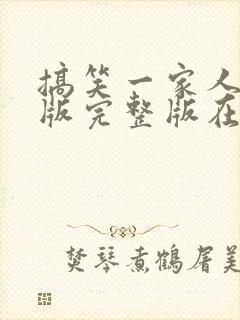 搞笑一家人
版完整版在
焚琴煮鹤屠美